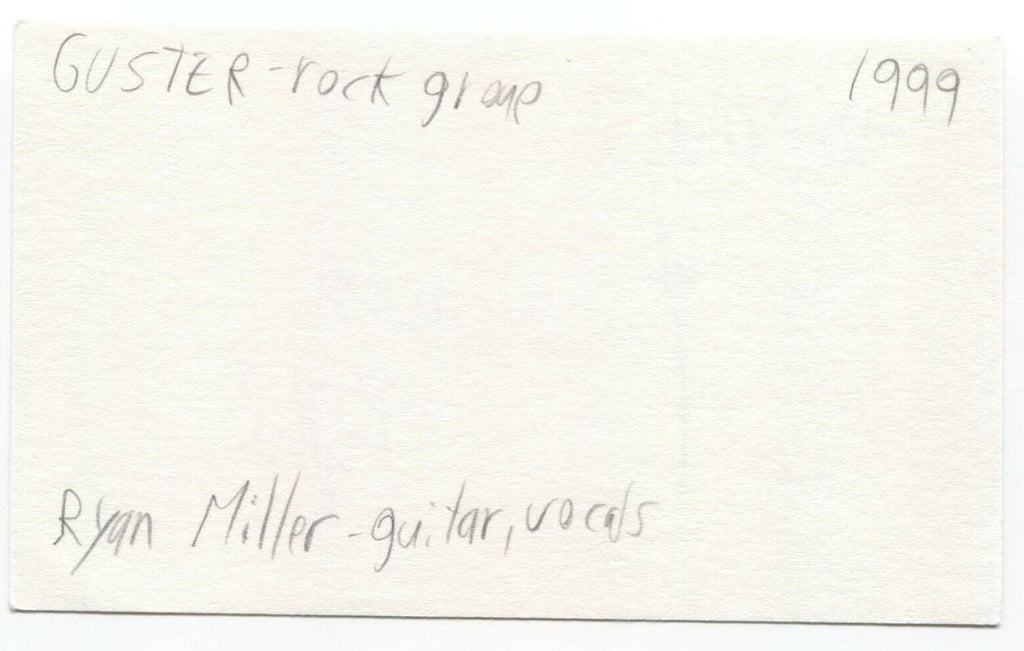 GUSTER - rock group 1999
Ryan Miller - guitar, vocals